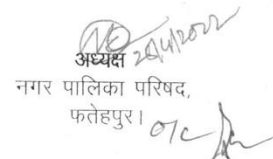 20/4/2022
अध्यक्ष
नगर पालिका परिषद,
फतेहपुर।
o/c